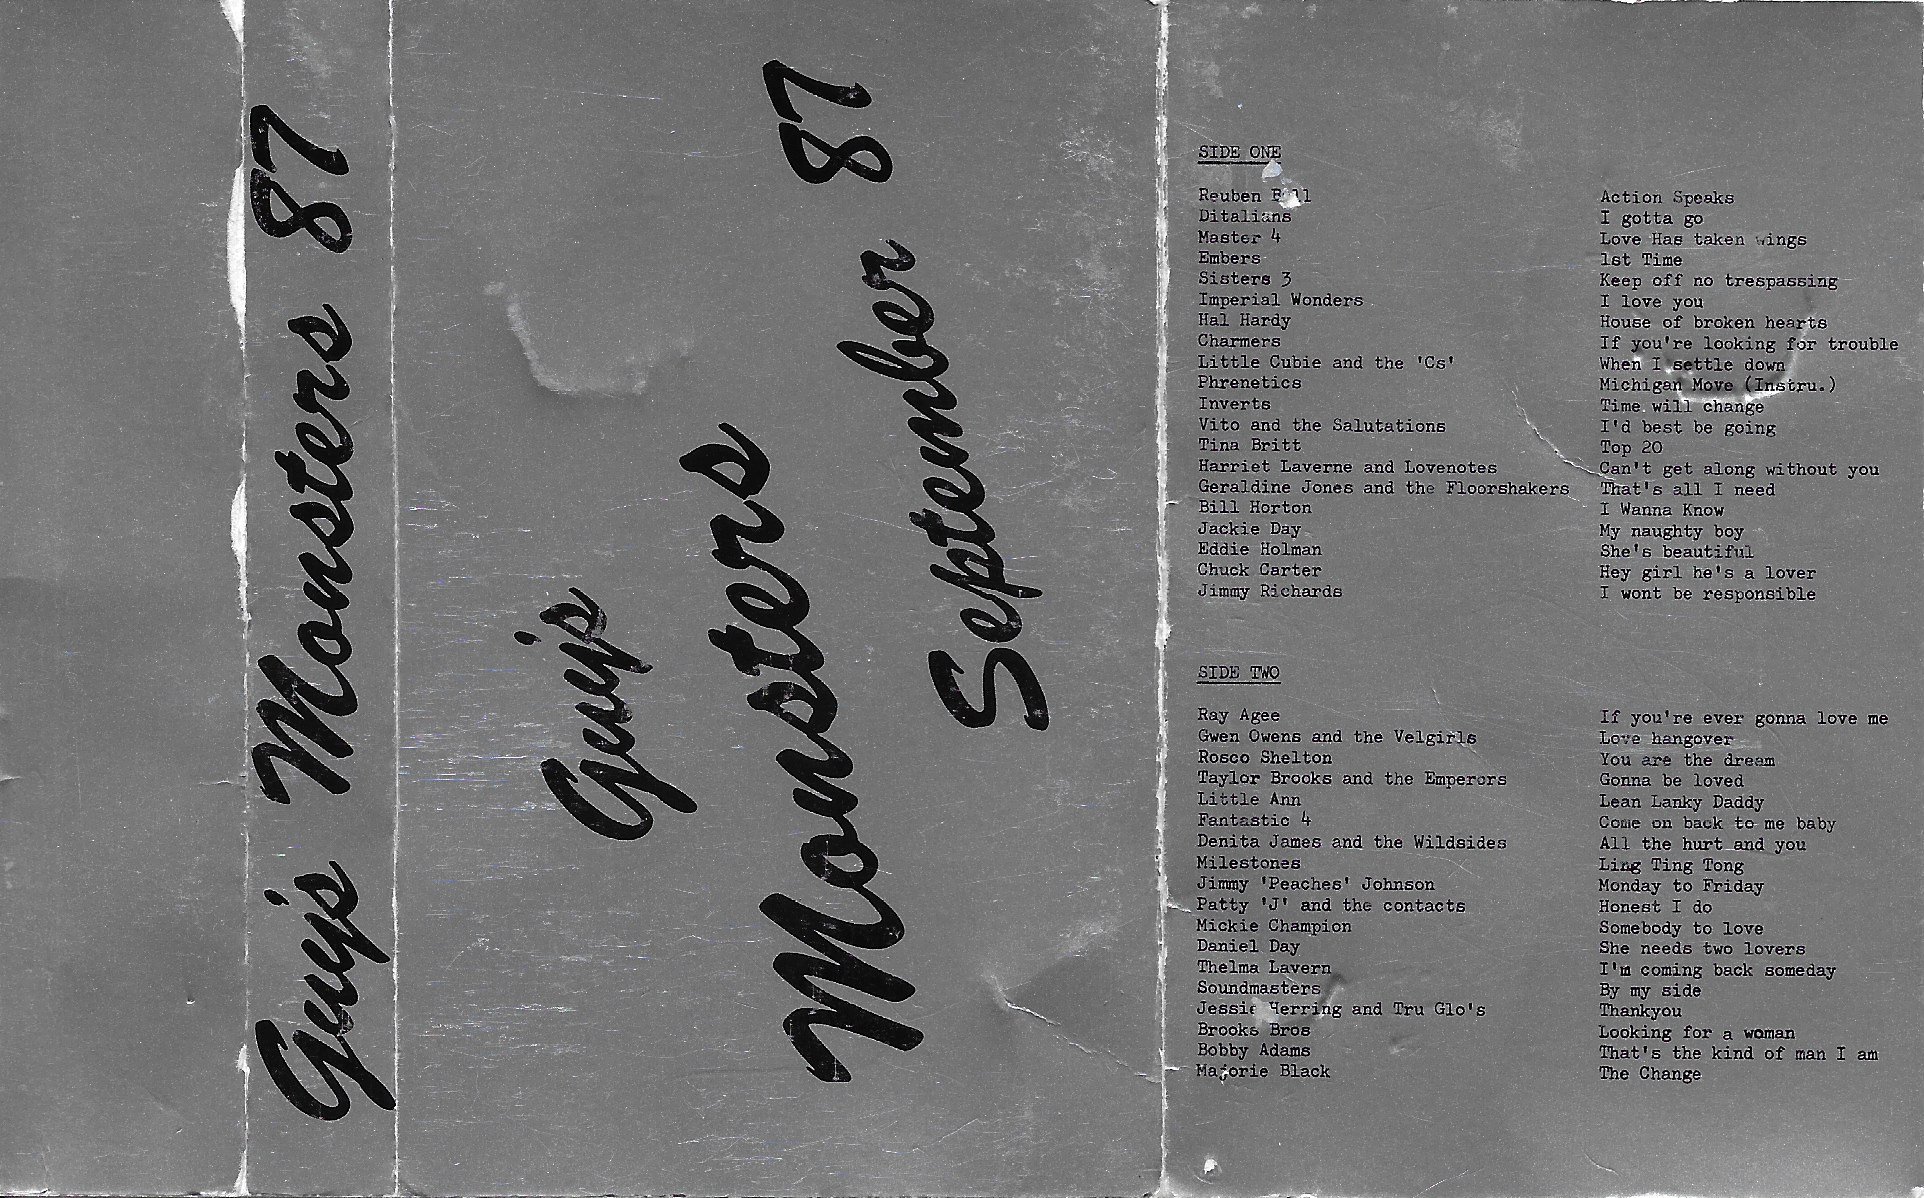 Guy's Monsters 87
Guy's
Monsters
September 87
SIDE ONE
Reuben Action Speaks
Ditalians I gotta go
Master 4 Love Has taken wings
Embers 1st Time
Sisters 3 Keep off no trespassing
Imperial Wonders I love you
Hal Hardy House of broken hearts
Charmers If you're looking for trouble
Little Cubie and the 'Cs' When I settle down
Phrenetics Michigan Move (Instru.)
Inverts Time will change
Vito and the Salutations I'd best be going
Tina Britt Top 20
Harriet Laverne and Lovenotes Can't get along without you
Geraldine Jones and the Floorshakers That's all I need
Bill Horton I Wanna Know
Jackie Day My naughty boy
Eddie Holman She's beautiful
Chuck Carter Hey girl he's a lover
Jimmy Richards I wont be responsible
SIDE TWO
Ray Agee If you're ever gonna love me
Gwen Owens and the Velgirls Love hangover
Rosco Shelton You are the dream
Taylor Brooks and the Emperors Gonna be loved
Little Ann Lean Lanky Daddy
Fantastic 4 Come on back to me baby
Denita James and the Wildsides All the hurt and you
Milestones Ling Ting Tong
Jimmy 'Peaches' Johnson Monday to Friday
Patty 'J' and the contacts Honest I do
Mickie Champion Somebody to love
Daniel Day She needs two lovers
Thelma Lavern I'm coming back someday
Soundmasters By my side
Jessie Herring and Tru Glo's Thankyou
Brooks Bros Looking for a woman
Bobby Adams That's the kind of man I am
Majorie Black The Change